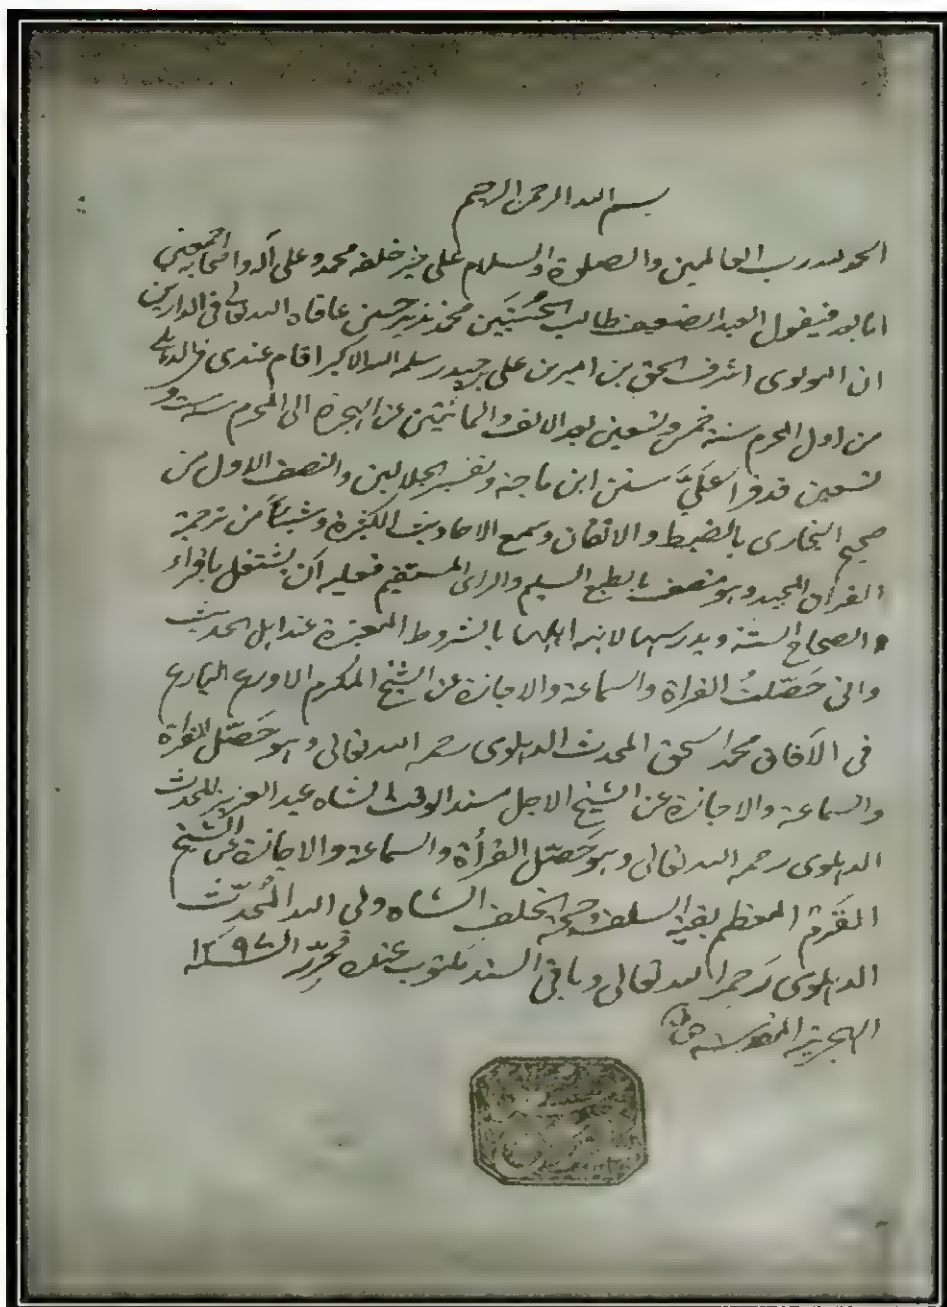 بسم الله الرحمن الرحيم
الحمد لله رب العالمين والصلوة والسلام على خير خلقه محمد وعلى آله واصحابه اجمعين
اما بعد فيقول العبد الضعيف طالب الحسنيين محمد نذير حسين عافاه الله تعالى في الدارين
ان المولوى اشرف الحق بن امير بن على حيدر سلمه الله الاكبر اقام عندى فى الدهلى
من اول المحرم سنة خمس وتسعين بعد الالف والمائتين من الهجرة الى المحرم سنة ست و
تسعين قد قرأ عَلَيَّ سنن ابن ماجة وتفسير الجلالين والنصف الاول من
صحيح البخارى بالضبط والاتقان وسمع الاحاديث الكثيرة وشيئاً من ترجمة
القرآن المجيد وهو متصف بالطبع السليم والراى المستقيم فعليه أن يشتغل باقراء
الصحاح الستة ويدرسها لانه اهلها بالشروط المعتبرة عند اهل الحديث
وانى حَصّلتُ القراة والسماعة والاجازة عن الشيخ المكرم الاورع البارع
فى الآفاق محمد اسحق المحدث الدهلوى رحمه الله تعالى وهو حَصّل القراة
والسماعة والاجازة عن الشيخ الاجل مسند الوقت الشاه عبد العزيز المحدث
الدهلوى رحمه الله تعالى وهو حَصّل القرأة والسماعة والاجازة عن الشيخ
القَرم المعظم بقية السلف وحجة الخلف الشاه ولي الله المُحدّث
الدهلوى رَحمه الله تعالى وباقى السند مكتوب عنده حُرّر السنة ١٢٩٧
الهجرية المقدسة